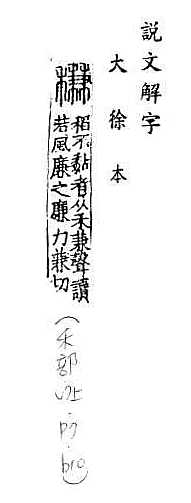 説文解字
大徐本
稻不黏者从禾兼聲讀
若風廉之廉力兼切
(禾部